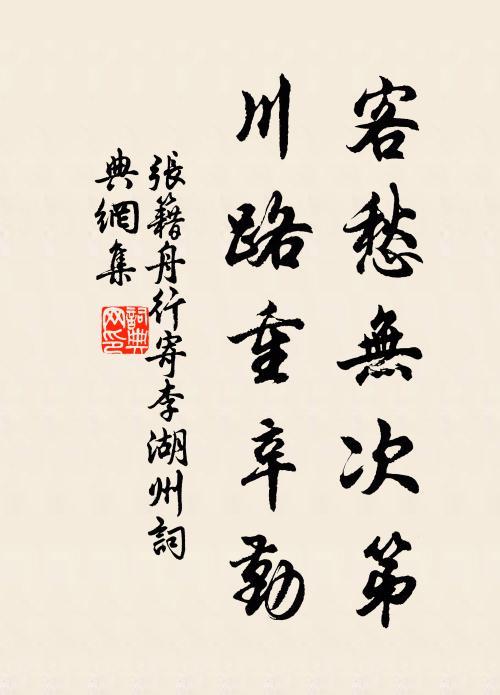 客愁無次第
川路重辛勤
張籍舟行寄李湖州詞
典網集
詞典
网印